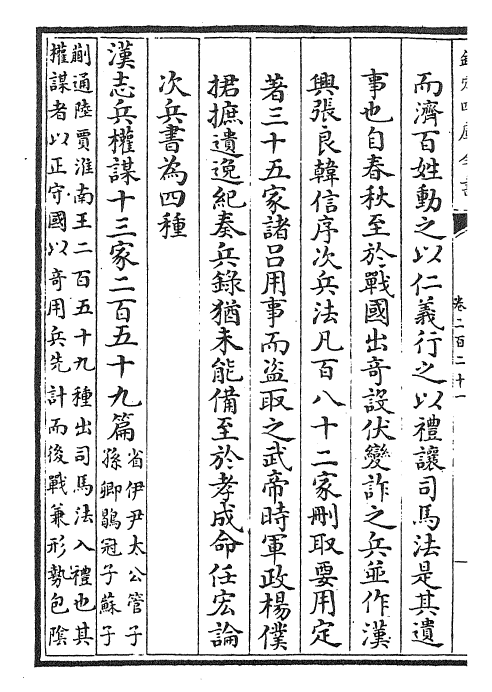 欽定四庫全書
卷二百二十一
而濟百姓動之以仁義行之以禮讓司馬法是其遺
事也自春秋至於戰國出竒設伏變詐之兵並作漢
興張良韓信序次兵法凡百八十二家刪取要用定
著三十五家諸呂用事而盗取之武帝時軍政楊僕
捃摭遺逸紀奏兵錄猶未能備至於孝成命任宏論
次兵書為四種
漢志兵權謀十三家二百五十九篇
省伊尹太公管子
孫卿鶡冠子蘇子
蒯通陸賈淮南王二百五十九種出司馬法入禮也其
權謀者以正守國以竒用兵先計而後戰兼形勢包隂